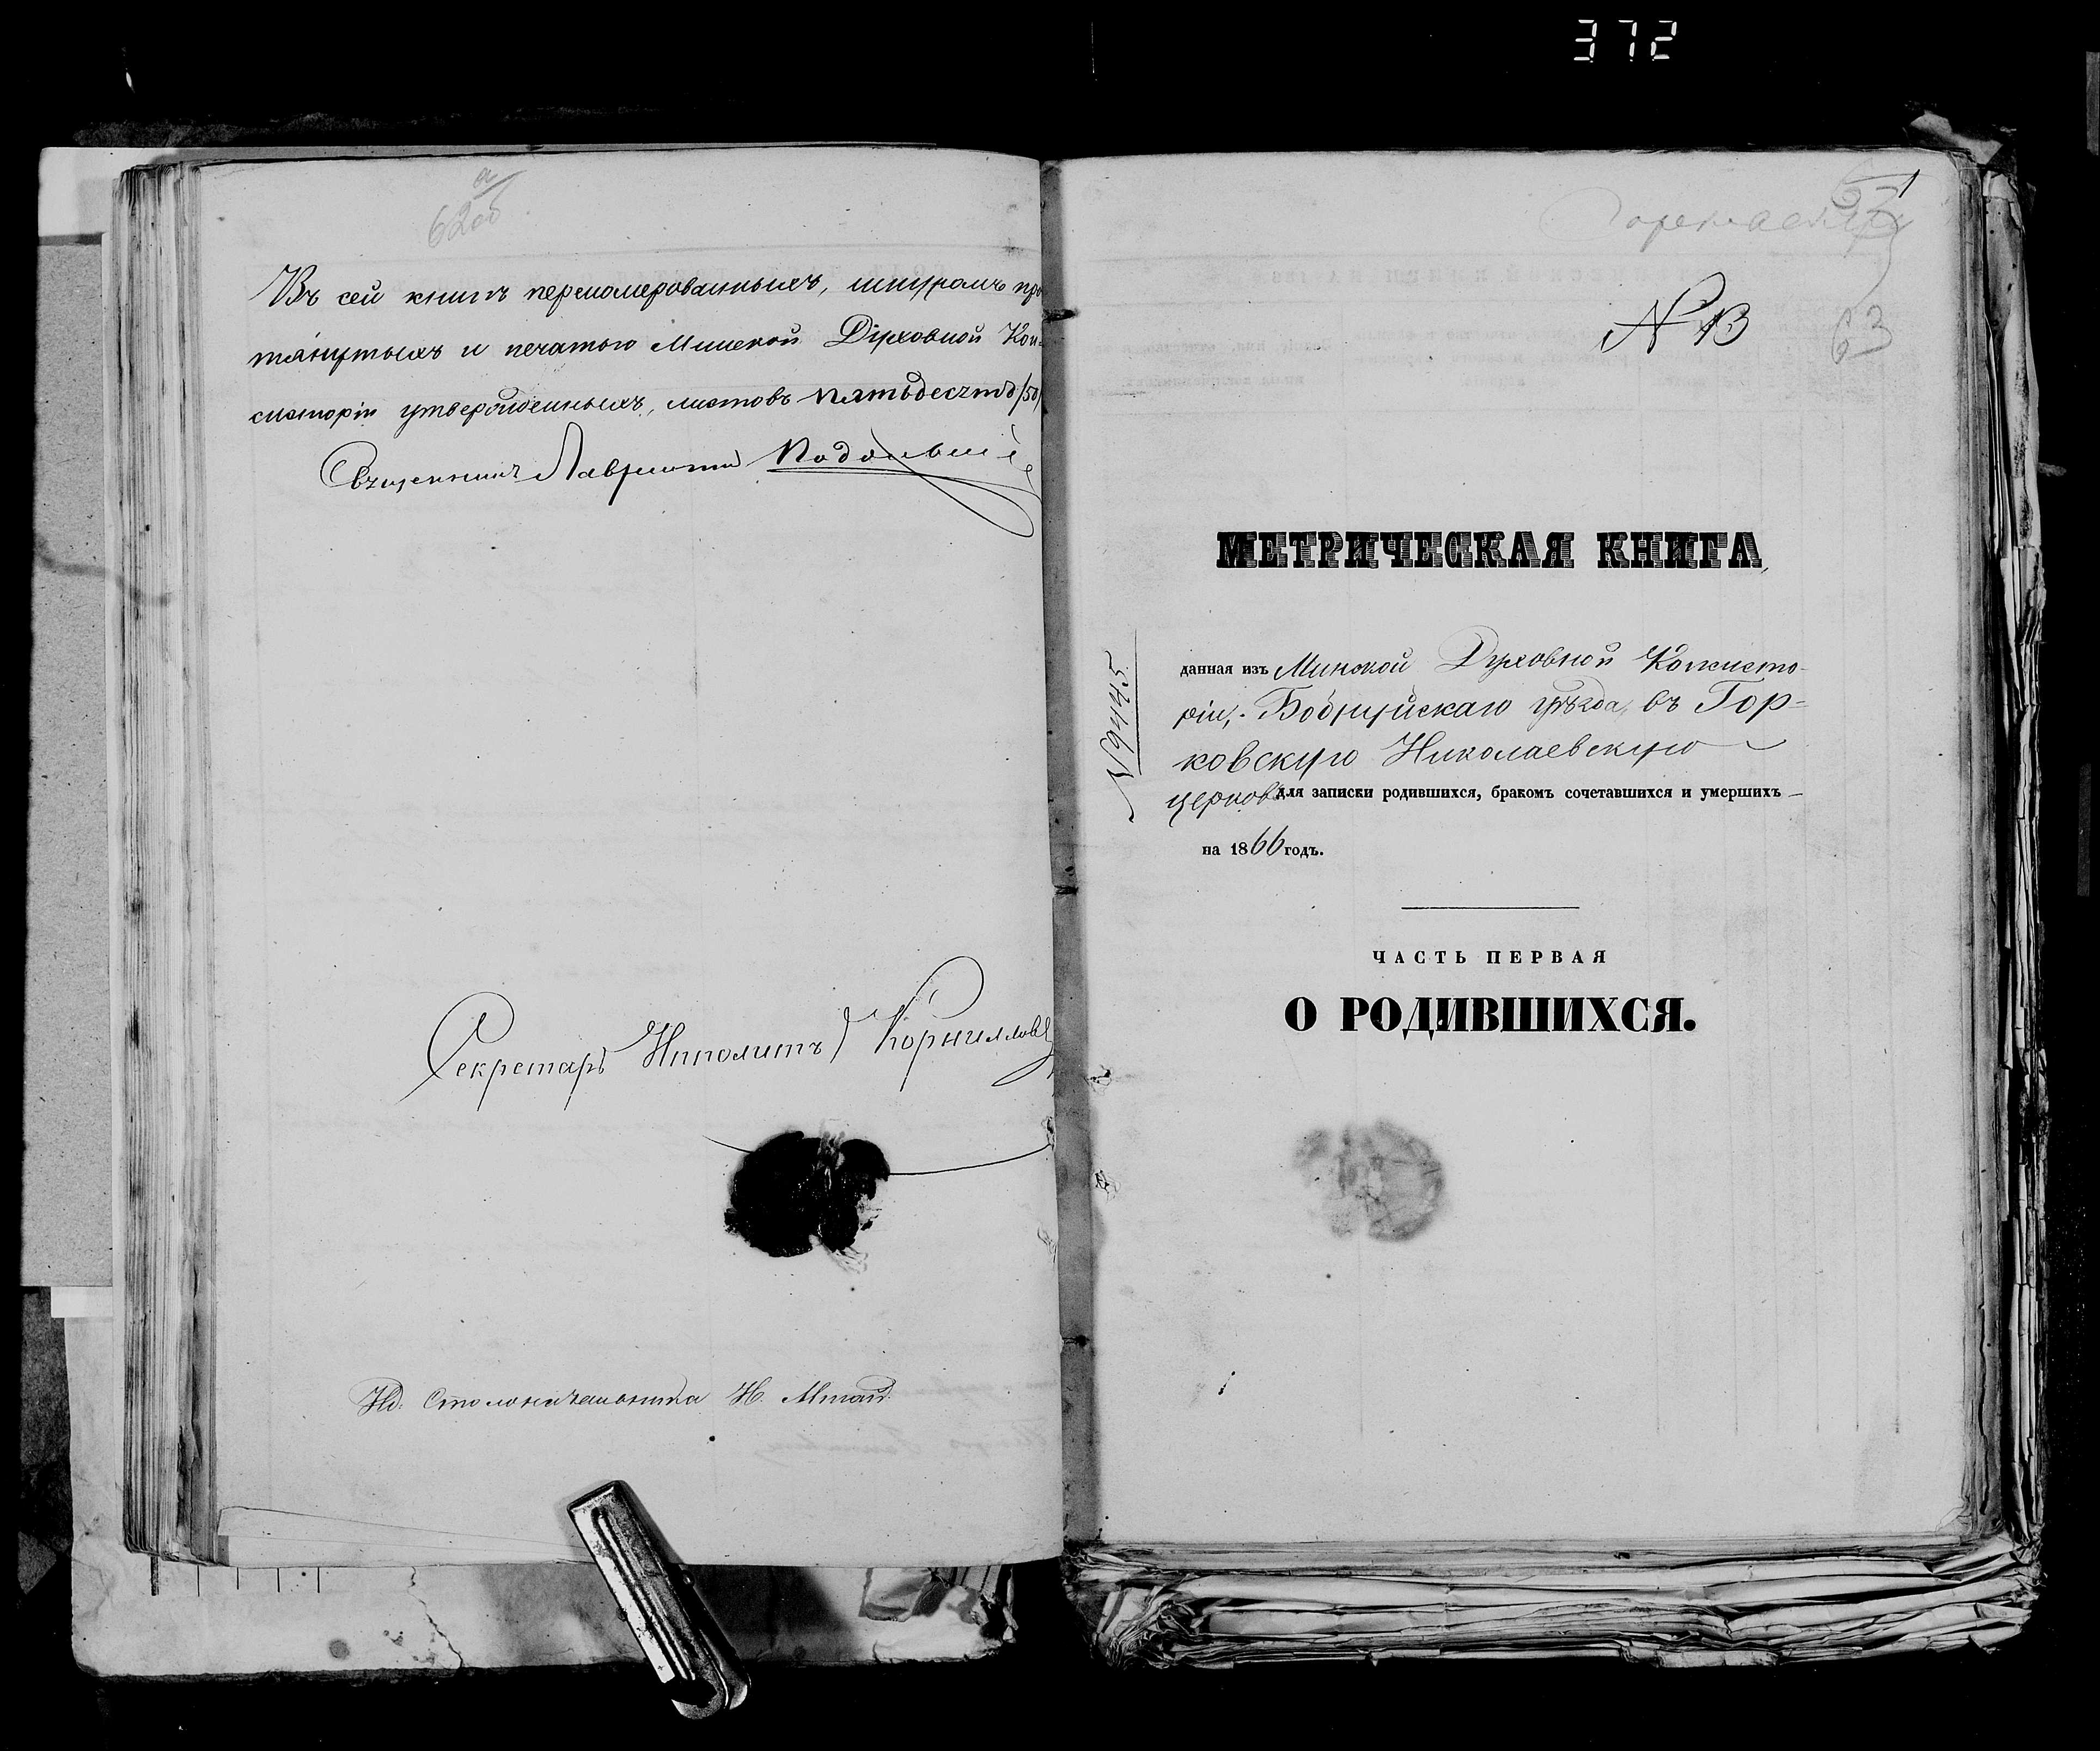 372
62 об
а
Въ сей книгѣ перенумерованныхъ, шнуромъ про
тянутыхъ и печатью Минской Духовной Кон=
систоріи утвержденныхъ, листовъ пятьдесятъ /50/
Священникъ Лаврентій
Секретарь Ипполитъ Корниллов
Ид. Столоначальника Н.
1
63
N 13
МЕТРИЧЕСКАЯ КНИГА,
N 9445
данная изъ Минской Духовной Консисто-
ріи, Бобруйскаго уѣзда, въ Гор=
ковскую Николаевскую
церковь для записки родившихся, бракомъ сочетавшихся и умершихъ
на 1866 годъ.
ЧАСТЬ ПЕРВАЯ
О РОДИВШИХСЯ.